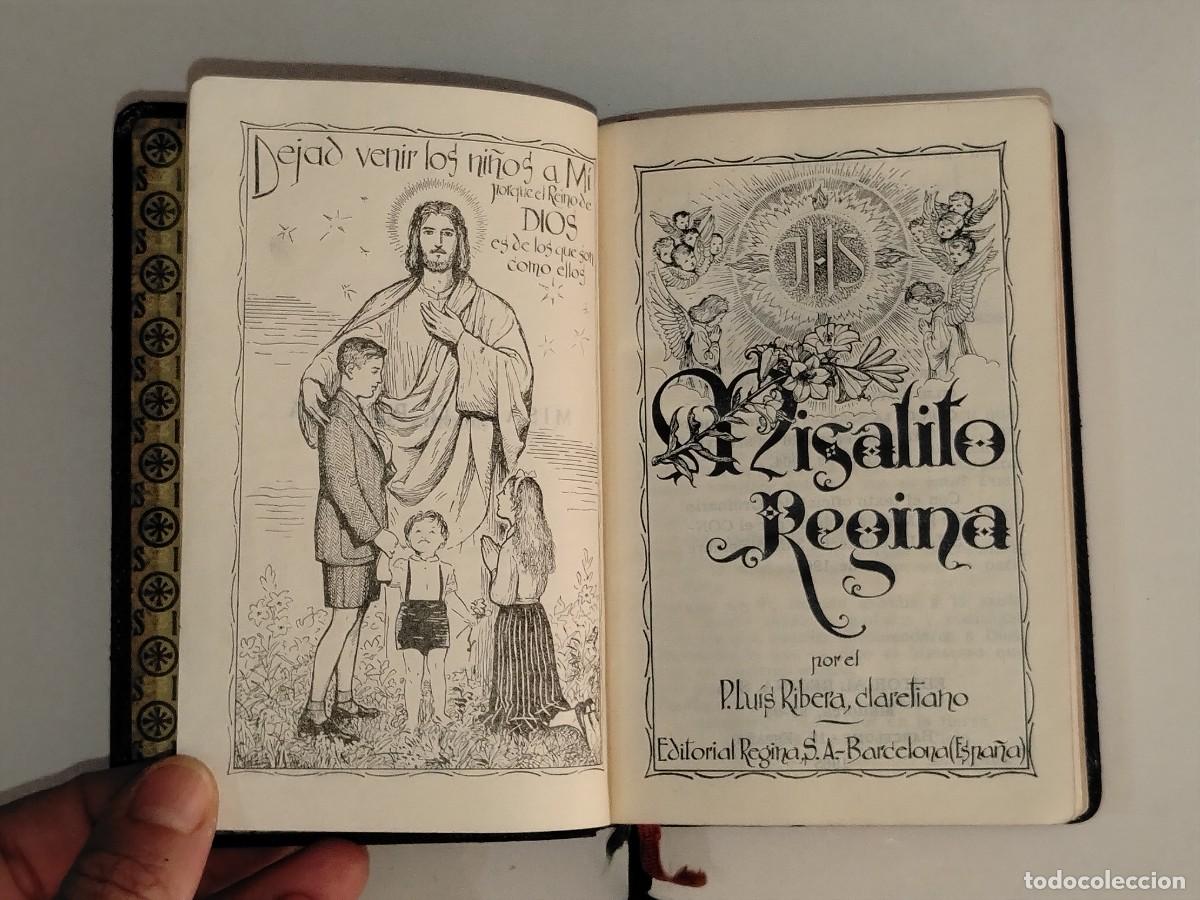 Dejad venir los niños a Mí
porque el Reino de
DIOS
es de los que son
como ellos
JHS
Misalito
Regina
por el
P. Luís Ribera, claretiano
Editorial Regina, S. A.-Barcelona (España)
todocoleccion